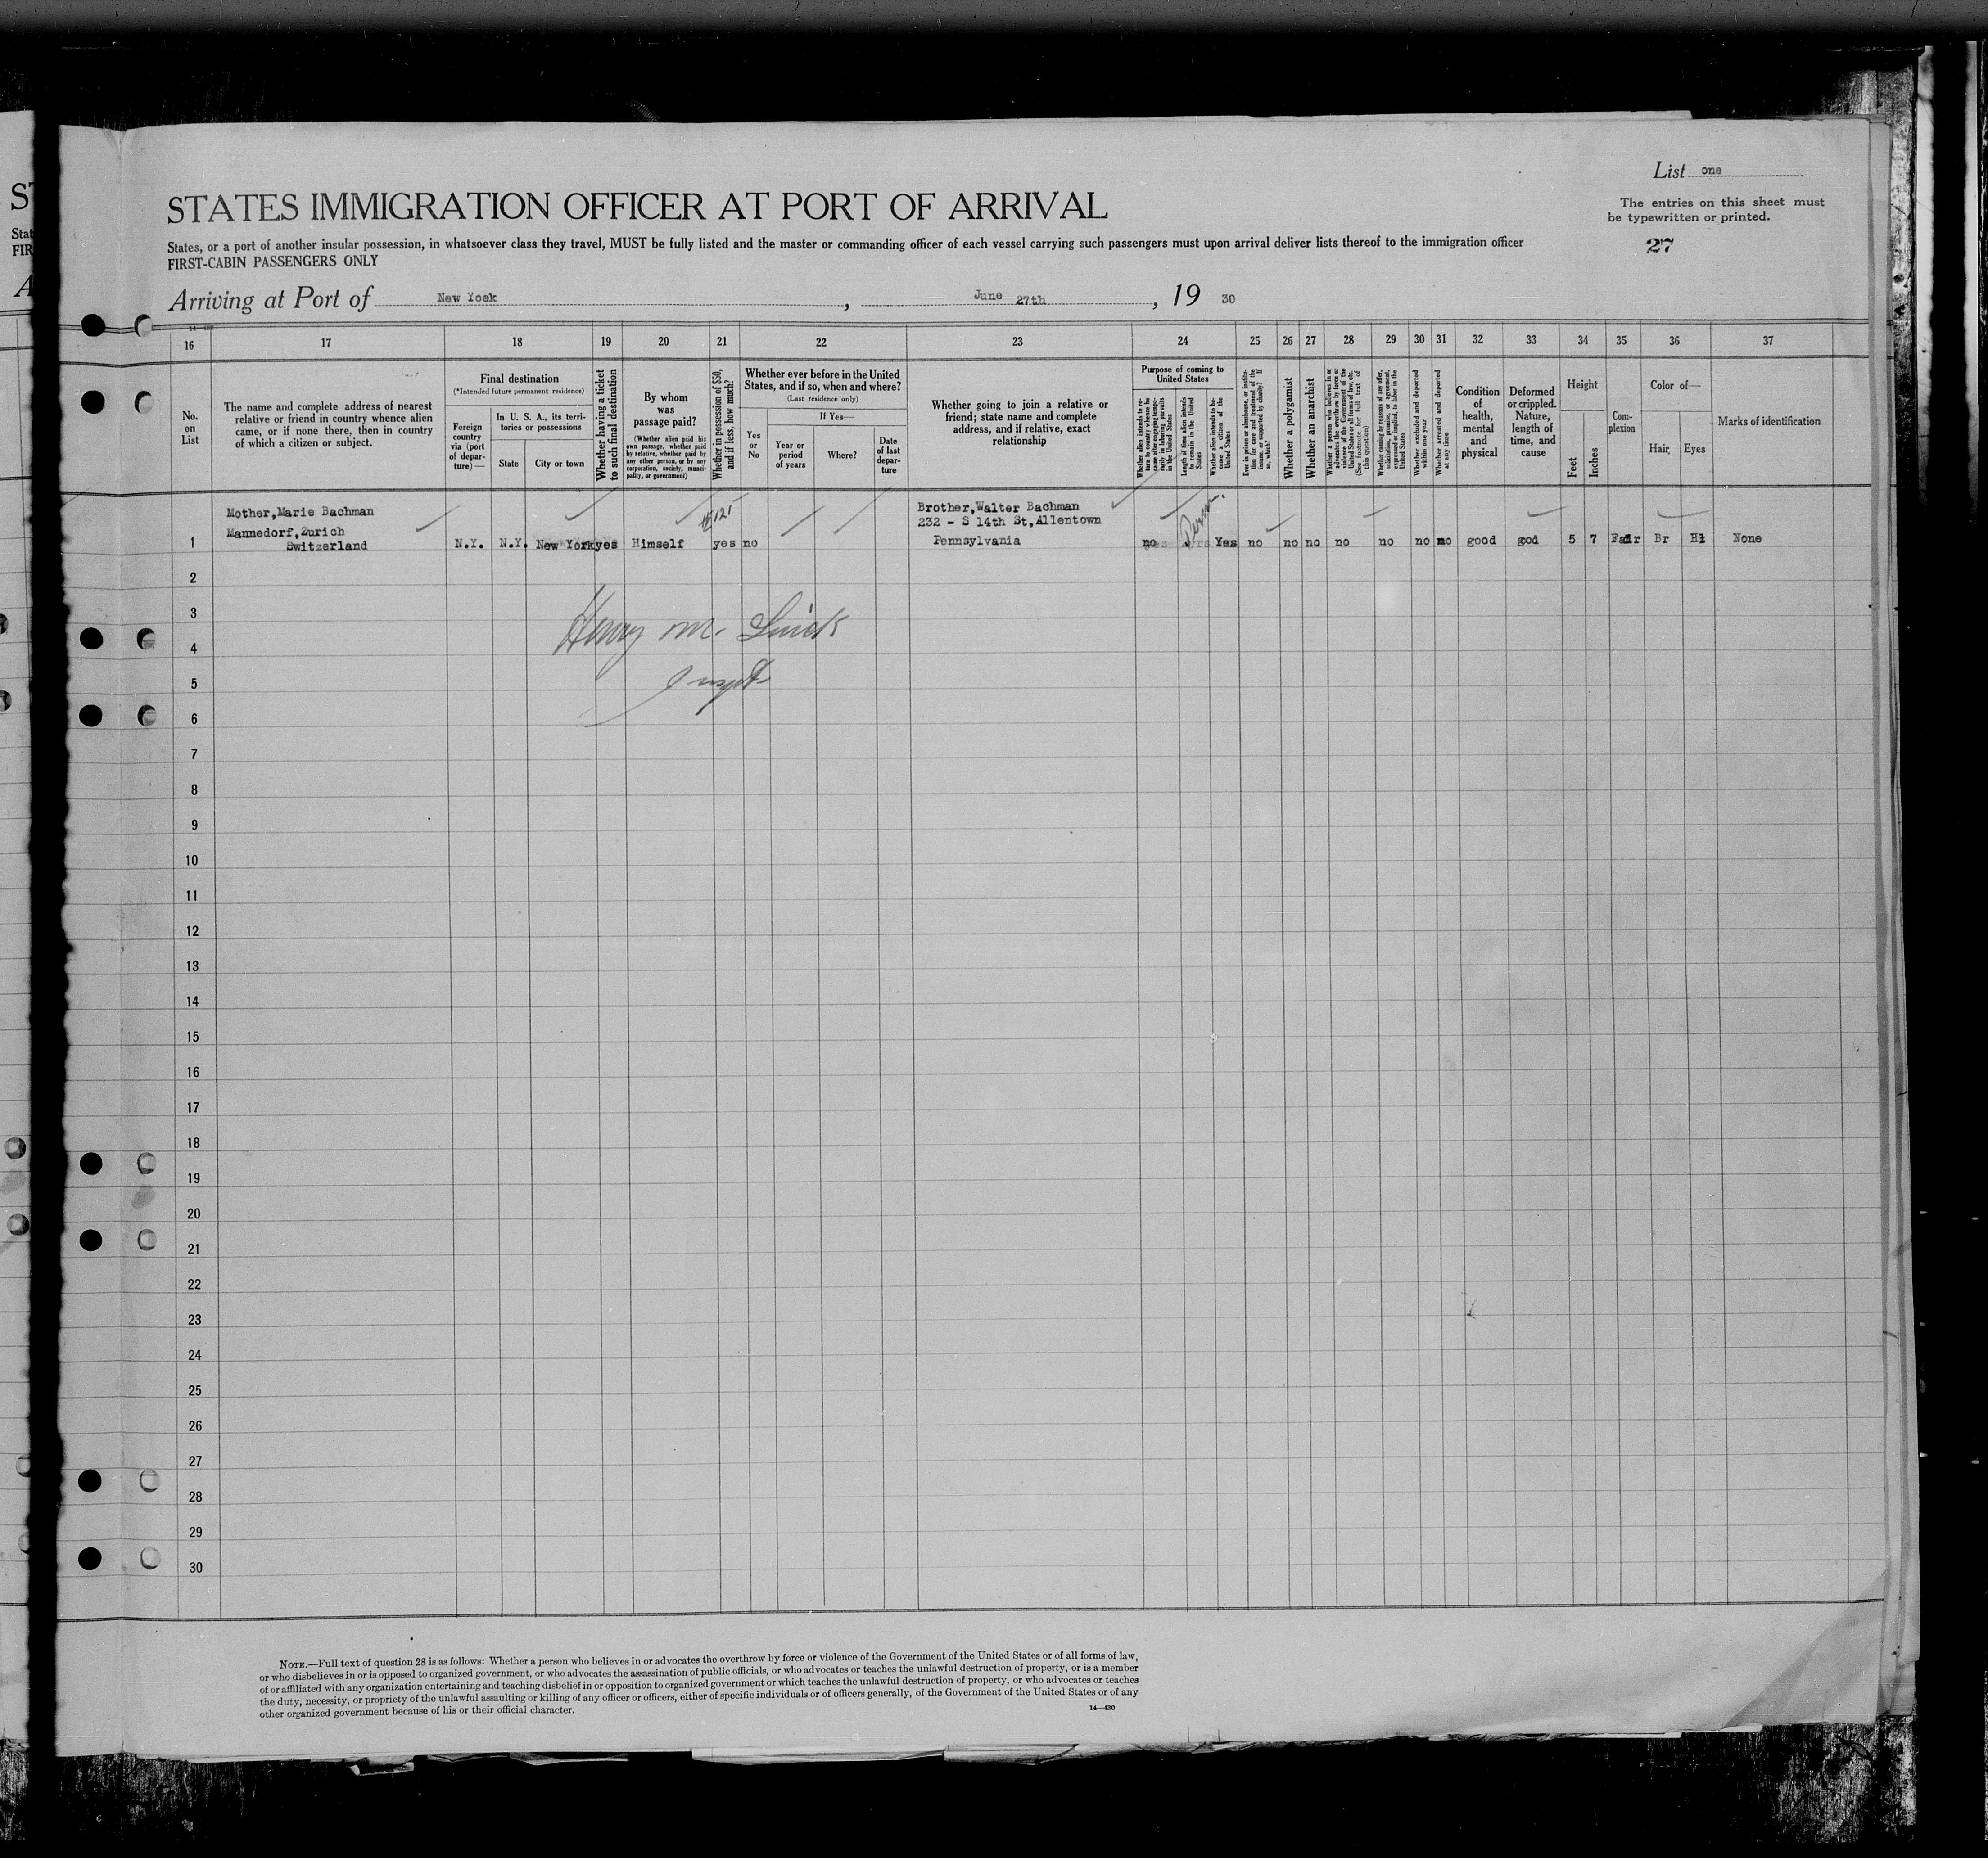 List one
The entries on this sheet must
be typewritten or printed.
27
STATES IMMIGRATION OFFICER AT PORT OF ARRIVAL
States, or a port of another insular possession, in whatsoever class they travel, MUST be fully listed and the master or commanding officer of each vessel carrying such passengers must upon arrival deliver lists thereof to the immigration officer
FIRST-CABIN PASSENGERS ONLY
Arriving at Port of New Yoek, June 27th, 19 30
16 17 18 19 20 21 22 23 24 25 26 27 28 29 30 31 32 33 34 35 36 37
No.
on
List
The name and complete address of nearest
relative or friend in country whence alien
came, or if none there, then in country
of which a citizen or subject.
Final destination
(*Intended future permanent residence)
Foreign
country
via (port
of depar-
ture)—
In U. S. A., its terri-
tories or possessions
State
City or town
Whether having a ticket
to such final destination
By whom
was
passage paid?
(Whether alien paid his
own passage, whether paid
by relative, whether paid by
any other person, or by any
corporation, society, munici-
pality, or government)
Whether in possession of $50,
and if less, how much?
Whether ever before in the United
States, and if so, when and where?
(Last residence only)
Yes
or
No
If Yes—
Year or
period
of years
Where?
Date
of last
depar-
ture
Whether going to join a relative or
friend; state name and complete
address, and if relative, exact
relationship
Purpose of coming to
United States
Length of time alien intends
to remain in the United
States
Whether alien intends to be-
come a citizen of the
United States
Whether a polygamist
Whether an anarchist
Whether excluded and deported
within one year
Whether arrested and deported
at any time
Condition
of
health,
mental
and
physical
Deformed
or crippled.
Nature,
length of
time, and
cause
Height
Feet
Inches
Com-
plexion
Color of—
Hair
Eyes
Marks of identification
Mother,Marie Bachman
Mannedorf,Zurich
Switzerland
Brother,Walter Bachman
232 - S 14th St,Allentown
Pennsylvania
1 N.Y. N.Y. New York yes Himself yes no no Yes no no no no no no no good god 5 7 Fair Br None
2
3
Henry M.
4
5
Inspt
6
7
8
9
10
11
12
13
14
15
16
17
18
19
20
21
22
23
24
25
26
27
28
29
30
NOTE.—Full text of question 28 is as follows: Whether a person who believes in or advocates the overthrow by force or violence of the Government of the United States or of all forms of law,
or who disbelieves in or is opposed to organized government, or who advocates the assassination of public officials, or who advocates or teaches the unlawful destruction of property, or is a member
of or affiliated with any organization entertaining and teaching disbelief in or opposition to organized government or which teaches the unlawful destruction of property, or who advocates or teaches
the duty, necessity, or propriety of the unlawful assaulting or killing of any officer or officers, either of specific individuals or of officers generally, of the Government of the United States or of any
other organized government because of his or their official character.
14—430